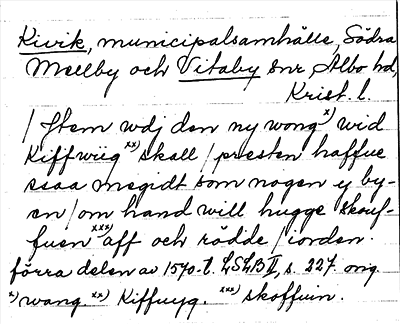 Kivik, municipalsamhälle, Södra
Mellby och Vitaby snr Albo hd,
Krist. l.
/ Jtem wdj den ny wong x) wid
Kiffwiig xx) skall / presten haffue
saa megidt som nogen y by-
en / om hand will hugge skouf-
fuen xxx) aff och rödde / iorden.
förra delen av 1570-t. LSLB II, s. 227. orig.
x) wang. xx) Kiffuyg. xxx) skoffuin.